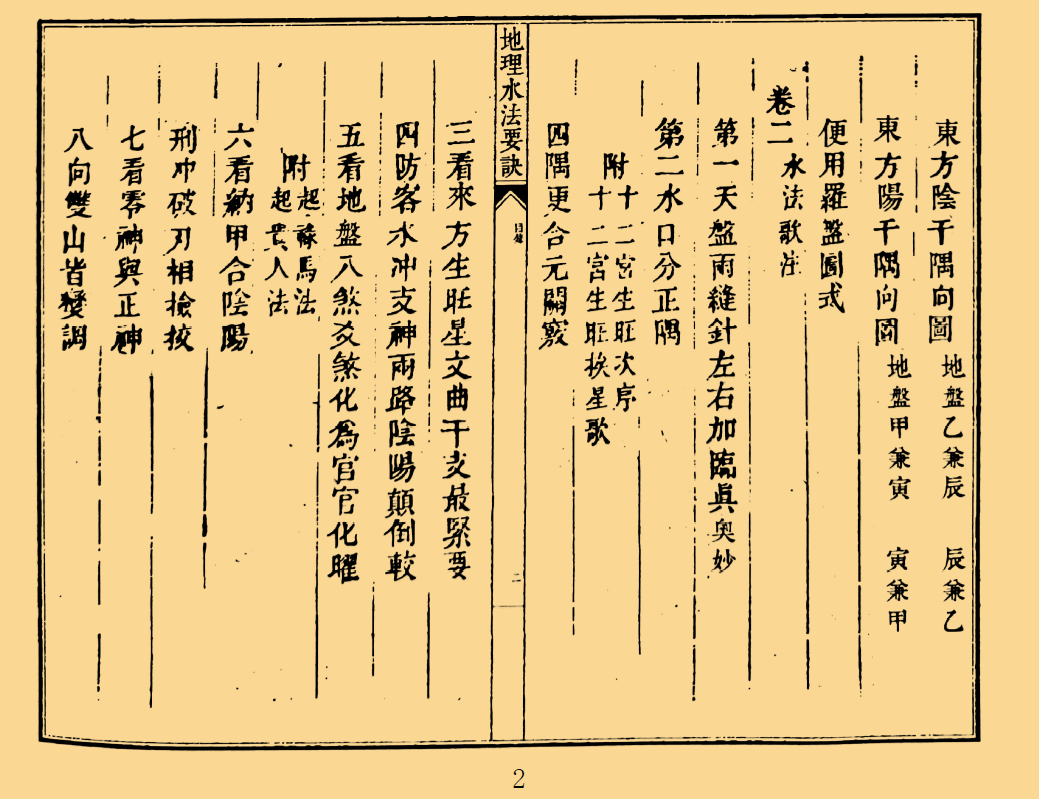 東方陰干隅向圖 地盤乙兼辰 辰兼乙
東方陽干隅向圖 地盤甲兼寅 寅兼甲
便用羅盤圖式
卷二 水法歌注
第一天盤兩縫針左右加臨眞奥妙
第二水口分正隅
附十二宮生旺次序
十二宮生旺挨星歌
四隅更合元關竅
地理水法要訣
目錄
二
三看來方生旺星文曲干支最緊要
四防客水冲支神兩路陰陽顛倒較
五看地盤八煞爻煞化爲官官化曜
附起祿馬法
起貴人法
六看納甲合陰陽
刑冲破刃相撿挍
七看零神與正神
八向雙山皆變調
2